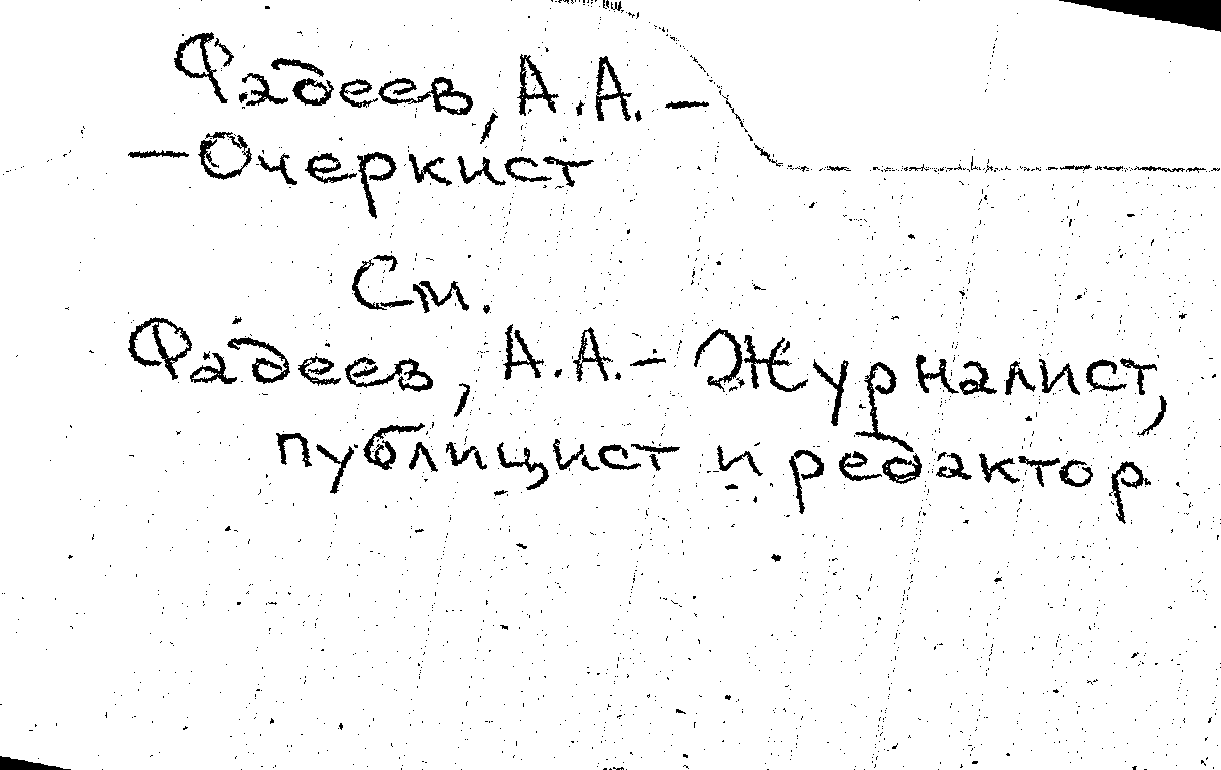 Фадеев, А.А. –
– Очеркист
См.
Фадеев, А.А. – Журналист,
публицист и редактор